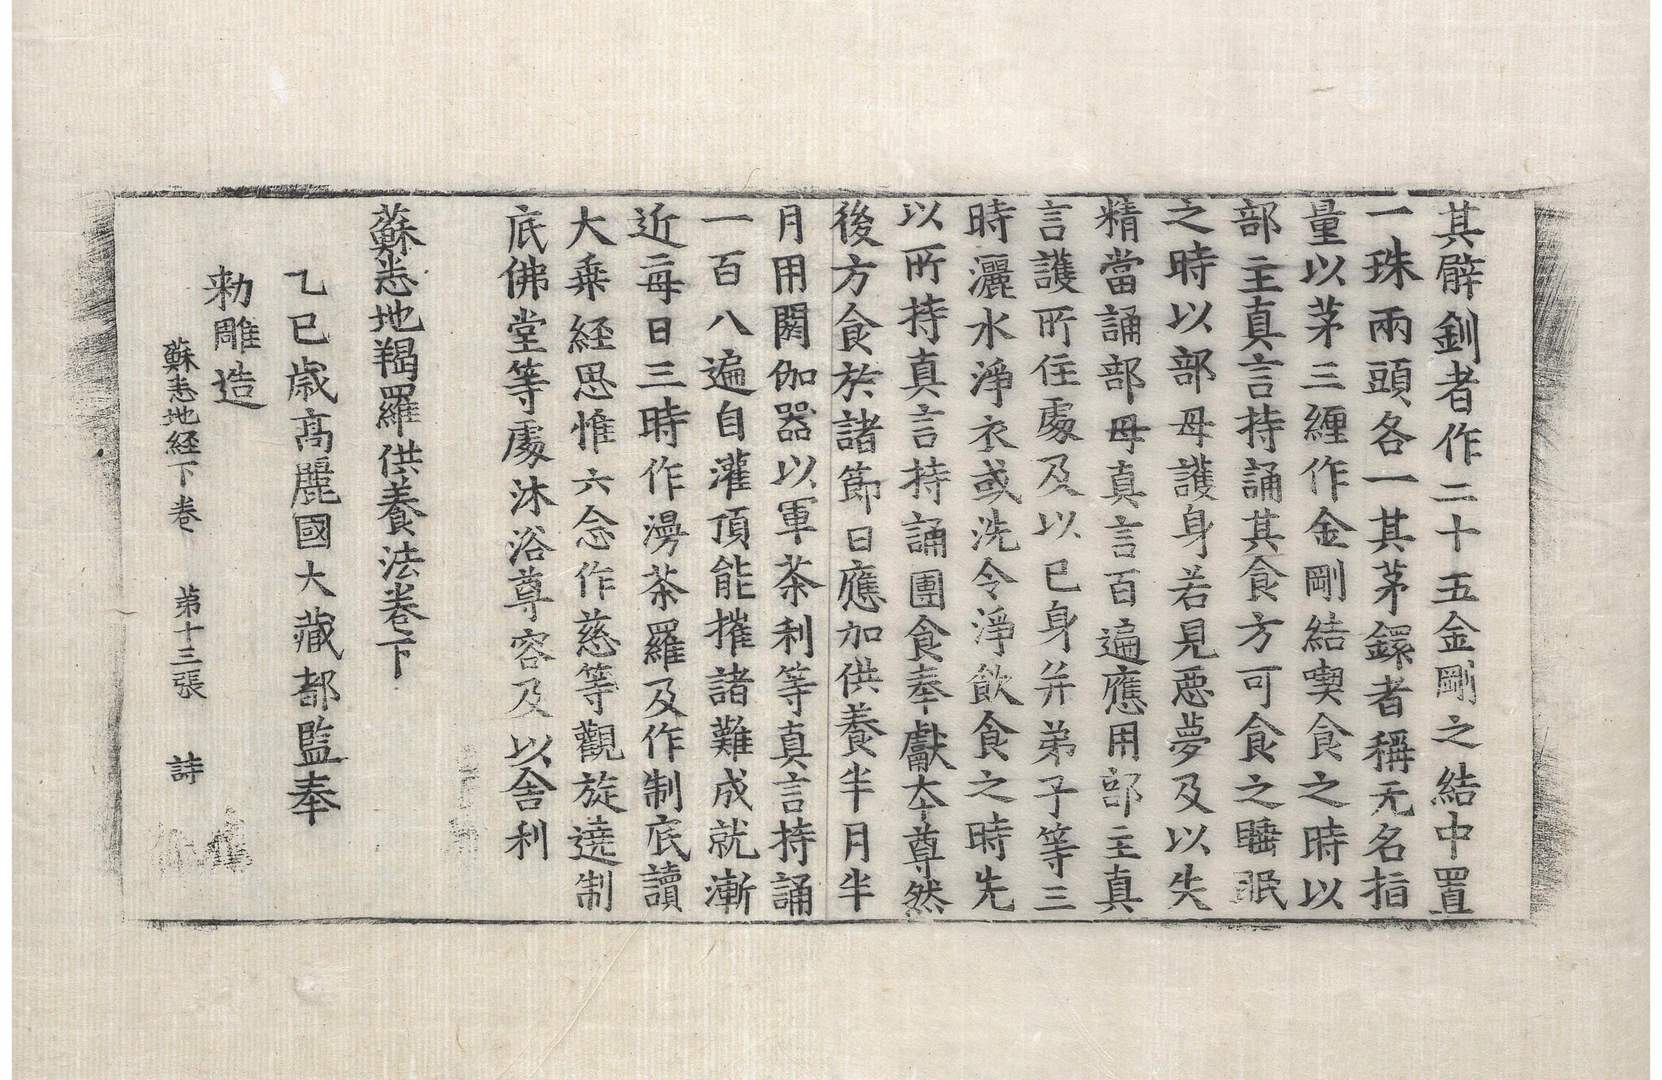 其臂釧者作二十五金剛之結中置
一珠兩頭各一其茅鐶者稱无名指
量以茅三纏作金剛結喫食之時以
部主真言持誦其食方可食之睡眠
之時以部母護身若見惡夢及以失
精當誦部母真言百遍應用部主真
言護所住處及以己身并弟子等三
時灑水淨衣或洗令淨飲食之時先
以所持真言持誦團食奉獻本尊然
後方食於諸節日應加供養半月半
月用閼伽器以軍茶利等真言持誦
一百八遍自灌頂能摧諸難成就漸
近每日三時作漫茶羅及作制底讀
大乘經思惟六念作慈等觀旋遶制
底佛堂等處沐浴尊容及以舍利
蘇悉地羯羅供養法卷下
乙巳歲高麗國大藏都監奉
勑雕造
蘇悉地経下卷 第十三張 詩